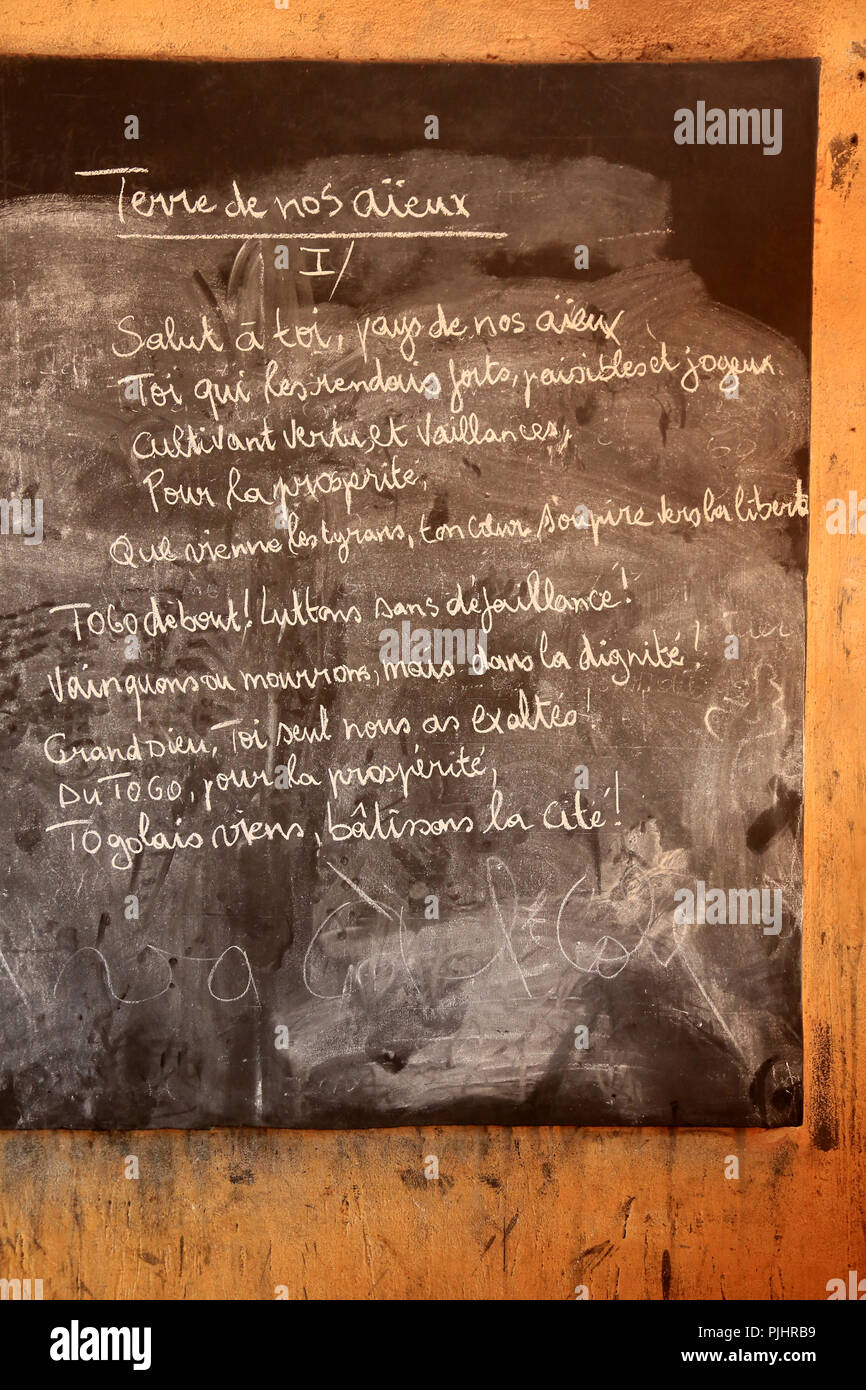 Terre de nos aïeux
I/
Salut à toi, pays de nos aïeux,
Toi, qui les rendais forts, paisibles et joyeux
Cultivant vertu, et vaillances,
Pour la prosperité,
Que vienne les tyrans, ton cœur soupire vers la liberté
TOGO debout! Luttons sans défaillance!
Vainquons ou mourrons, mais dans la dignité!
Grand dieu, Toi seul nous as exaltés!
Du TOGO, pour la prospérité,
TOgolais viens, bâtissons la cité!
alamy
Image ID: PJHRB9
www.alamy.com